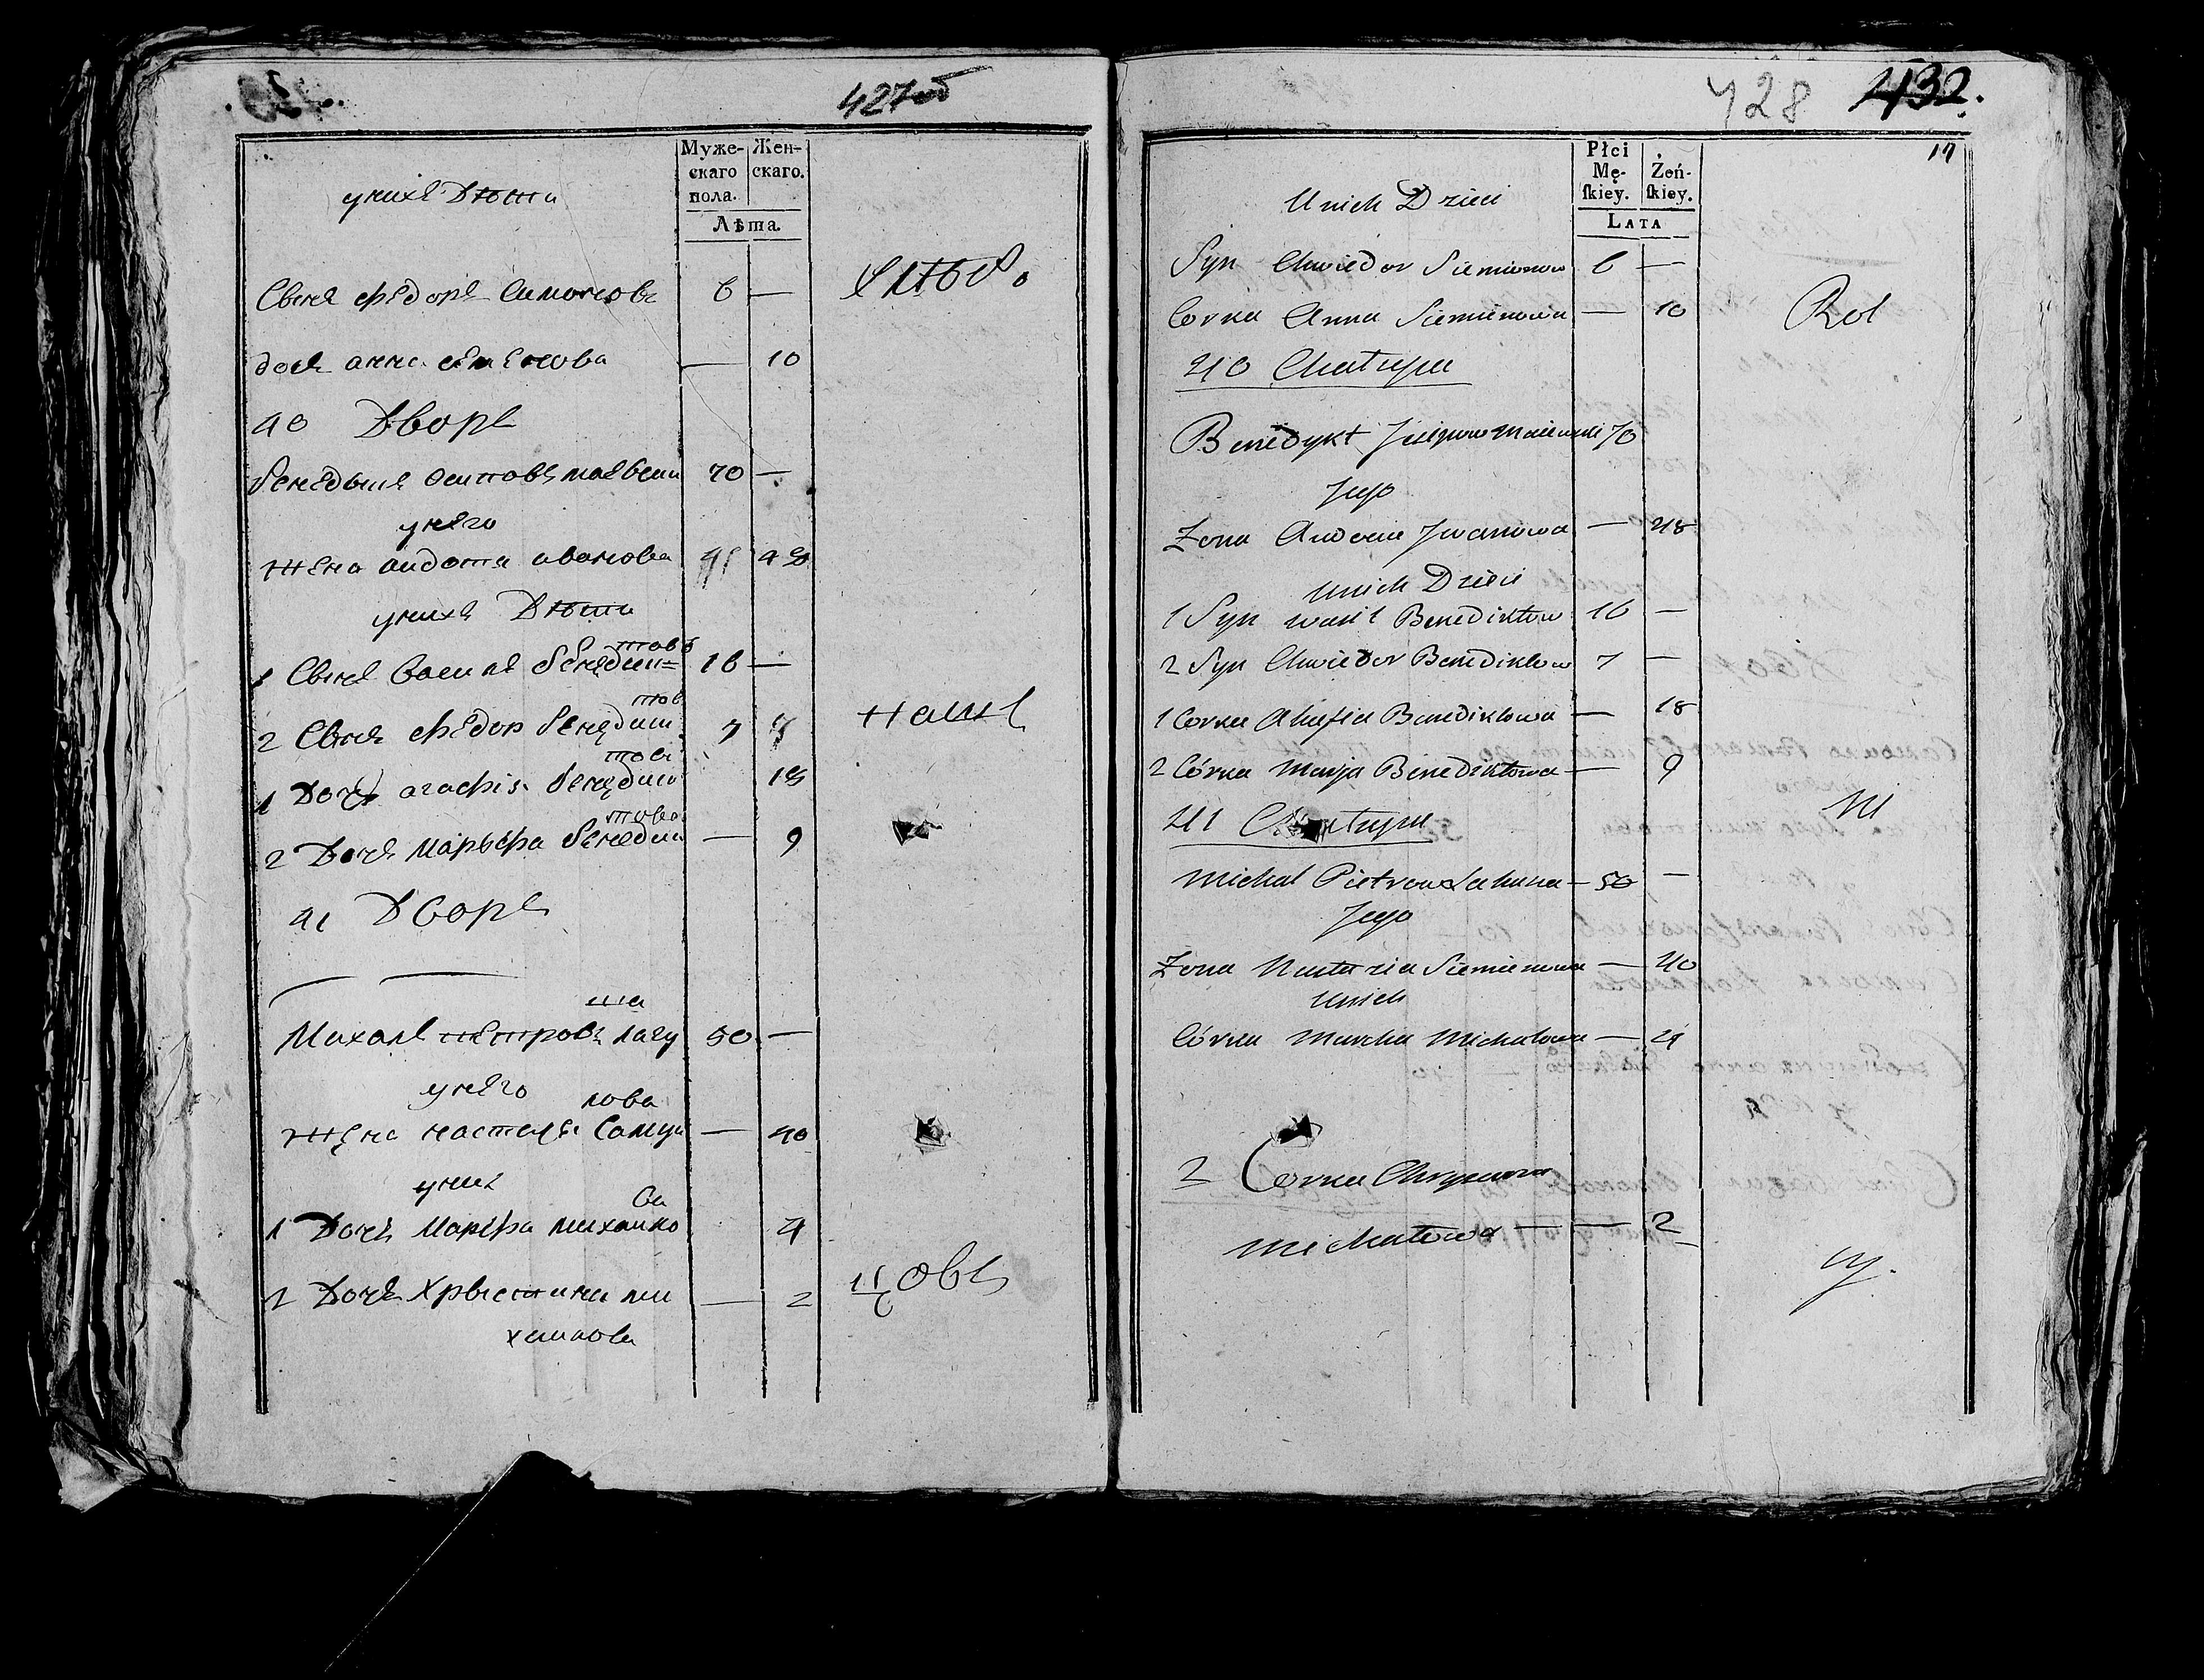 427об
Муже-
скаго
пола.
Жен-
скаго.
Лѣта.
унихъ Дѣти
Сынъ Ѳедоръ Симоновъ 6 —
дочь анна семенова — 10
40 Дворъ
бенедыктъ осиповъ маевски 70 —
унего
жена авдотя ивановa 48
унихъ Дѣти
товъ
1 Сынъ Василь бенедик= 16 —
тов
2 Сынъ Федор бенедик 7
това
1 Дочь агафия бенедик 18
нашъ
това
2 Дочь Марьфа бенедик — 9
41 Дворъ
ша
Михалъ петровъ лагу 50 —
унего
лова
жена настася Самуи — 40
уних
ва
1 Дочь Марфа михаило 4
2 Дочь Хрыстина ми — 2
хаилова
428 432.
17
Płci
Mę-
ſkiey.
Żeń-
ſkiey.
Lata
Unich Dzieci
Syn Chwiedor Siemionow 6 —
Corka Anna Siemienowa — 10
Rol
40 Chatupa
Benedykt Jusipow Maiewski 70
Jego
Zona Audocia Jwanowa — 48
Unich Dzieci
1 Syn Wasil Benediktow 16 —
2 Syn Chwiedor Benediktow 7 —
1 Corka Ahafia Benediktowa — 18
2 Córka Marja Benediktowa — 9
ni
41 Chatupa
Michal Pietrow Lahusza — 50 —
Jego
Zona Nastazia Siemienowa — 40
Unich
Córka Marcha Michalowa — 4
2 Corka Chrystina
Michalowa — — 2
cy.